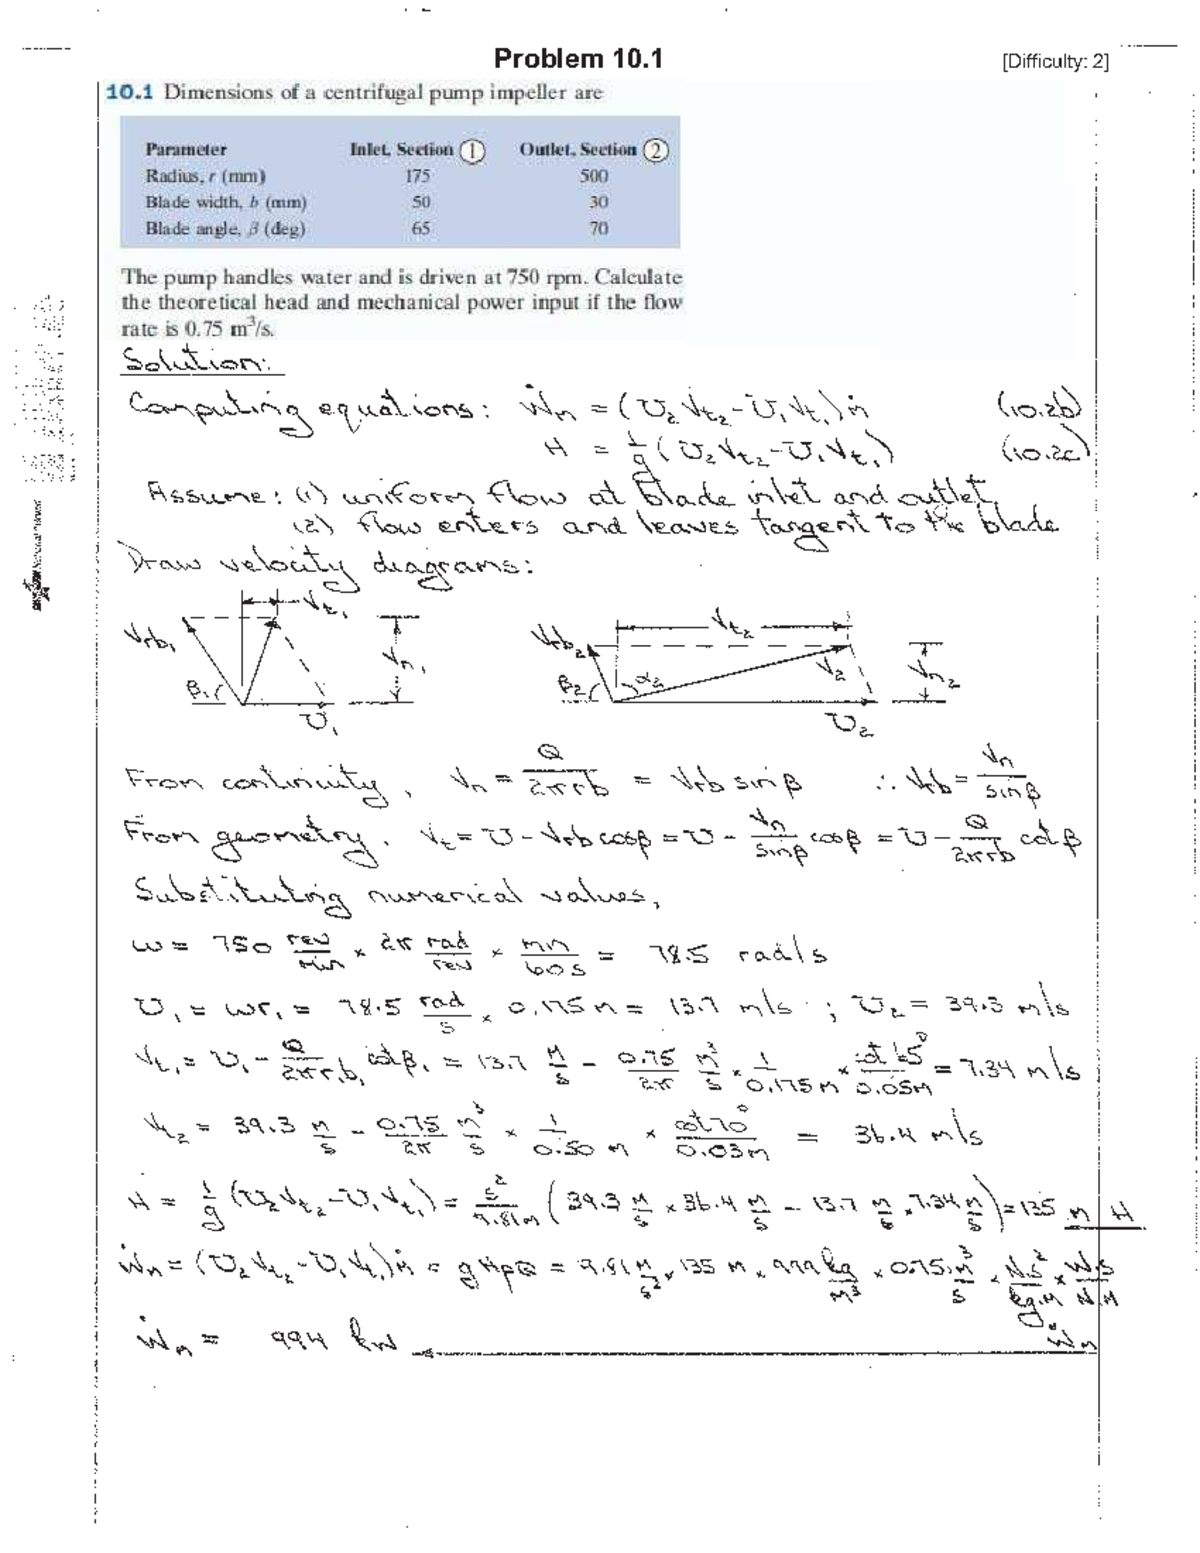 Problem 10.1
[Difficulty: 2]
10.1 Dimensions of a centrifugal pump impeller are
Parameter Inlet, Section ① Outlet, Section ②
Radius, r (mm) 175 500
Blade width, b (mm) 50 30
Blade angle, β (deg) 65 70
The pump handles water and is driven at 750 rpm. Calculate
the theoretical head and mechanical power input if the flow
rate is 0.75 m³/s.
Solution:
Computing equations: Ẇm = (U₂Vt₂ - U₁Vt₁)ṁ (10.2b)
H = 1/g (U₂Vt₂ - U₁Vt₁) (10.2c)
Assume: (1) uniform flow at blade inlet and outlet
(2) flow enters and leaves tangent to the blade
Draw velocity diagrams:
Vt₁ Vrb₁ Vn₁ β₁ U₁
Vt₂ Vrb₂ V₂ Vn₂ β₂ α₂ U₂
From continuity, Vn = Q/2πrb = Vrb sinβ ∴ Vrb = Vn/sinβ
From geometry, Vt = U - Vrb cosβ = U - Vn/sinβ cosβ = U - Q/2πrb cotβ
Substituting numerical values,
ω = 750 rev/min × 2π rad/rev × min/60s = 78.5 rad/s
U₁ = ωr₁ = 78.5 rad/s × 0.175m = 13.7 m/s ; U₂ = 39.3 m/s
Vt₁ = U₁ - Q/2πr₁b₁ cotβ₁ = 13.7 m/s - 0.75/2π m³/s × 1/0.175m × cot 65°/0.05m = 7.34 m/s
Vt₂ = 39.3 m/s - 0.75/2π m³/s × 1/0.50 m × cot70°/0.03m = 36.4 m/s
H = 1/g (U₂Vt₂ - U₁Vt₁) = s²/9.81m (39.3 m/s × 36.4 m/s - 13.7 m/s × 7.34 m/s) = 135 m H
Ẇm = (U₂Vt₂ - U₁Vt₁)ṁ = gHρQ = 9.81 m/s² × 135 m × 999 kg/m³ × 0.75 m³/s × N·s²/kg·m × W·s/N·m
Ẇm = 994 kW Ẇm